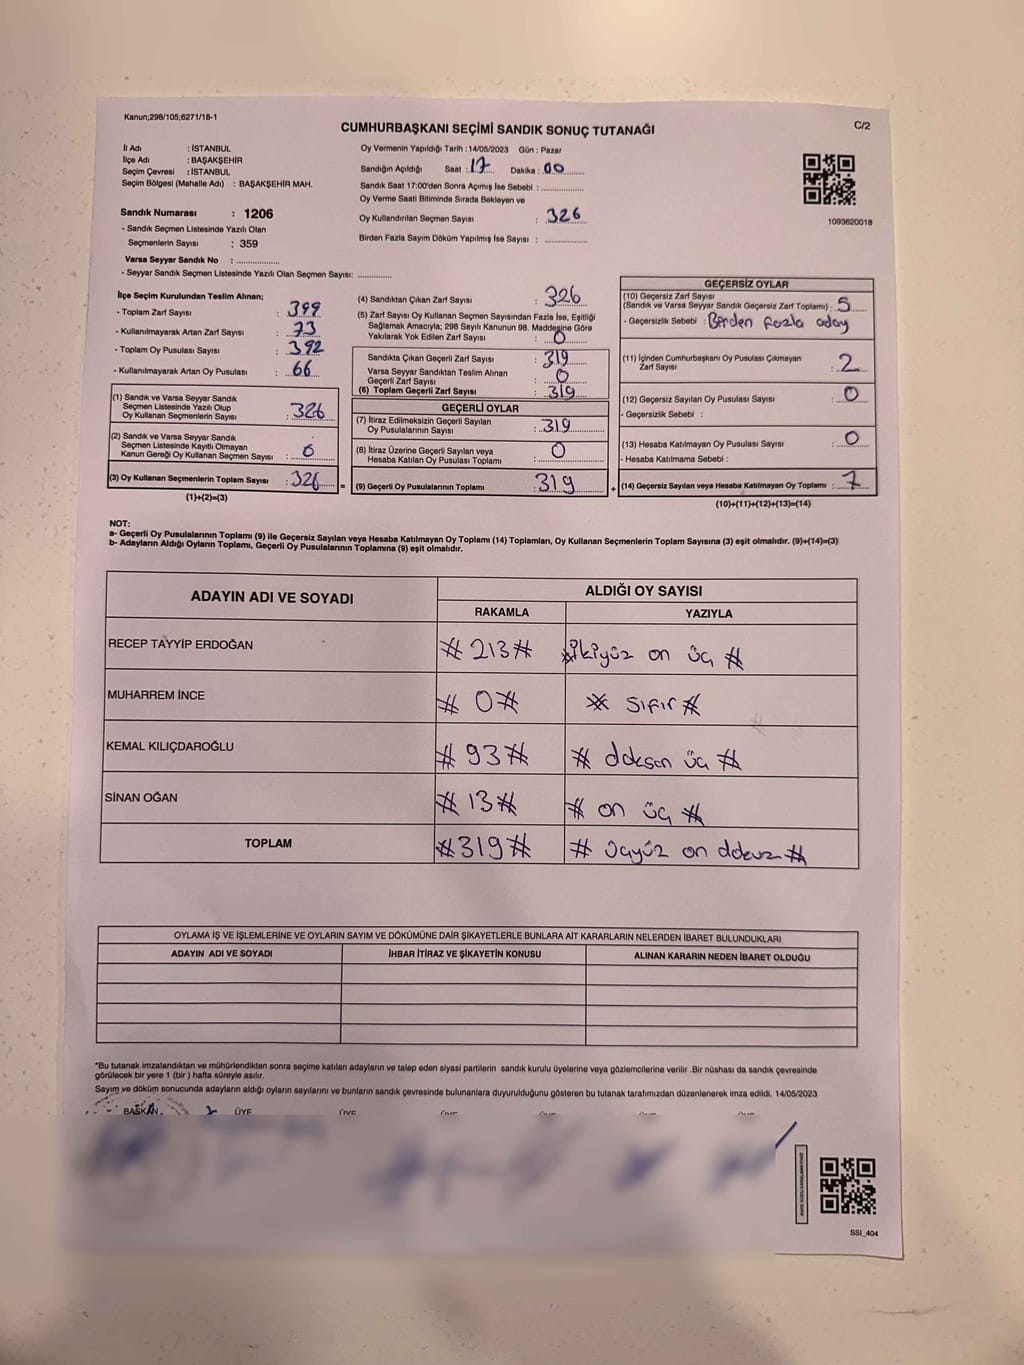 Kanun;298/105;6271/18-1
CUMHURBAŞKANI SEÇİMİ SANDIK SONUÇ TUTANAĞI
C/2
İl Adı : İSTANBUL
İlçe Adı : BAŞAKŞEHİR
Seçim Çevresi : İSTANBUL
Seçim Bölgesi (Mahalle Adı) : BAŞAKŞEHİR MAH.
Sandık Numarası : 1206
- Sandık Seçmen Listesinde Yazılı Olan
Seçmenlerin Sayısı : 359
Varsa Seyyar Sandık No : ..............
- Seyyar Sandık Seçmen Listesinde Yazılı Olan Seçmen Sayısı: ............
Oy Vermenin Yapıldığı Tarih : 14/05/2023 Gün : Pazar
Sandığın Açıldığı Saat : 17 Dakika : 00
Sandık Saat 17:00'den Sonra Açımış İse Sebebi : ..............
Oy Verme Saati Bitiminde Sırada Bekleyen ve
Oy Kullandırılan Seçmen Sayısı : 326
Birden Fazla Sayım Döküm Yapılmış İse Sayısı : ..............
1093620018
İlçe Seçim Kurulundan Teslim Alınan;
- Toplam Zarf Sayısı : 399
- Kullanılmayarak Artan Zarf Sayısı : 73
- Toplam Oy Pusulası Sayısı : 392
- Kullanılmayarak Artan Oy Pusulası : 66
(1) Sandık ve Varsa Seyyar Sandık
Seçmen Listesinde Yazılı Olup
Oy Kullanan Seçmenlerin Sayısı : 326
(2) Sandık ve Varsa Seyyar Sandık
Seçmen Listesinde Kayıtlı Olmayan
Kanun Gereği Oy Kullanan Seçmen Sayısı : 0
(3) Oy Kullanan Seçmenlerin Toplam Sayısı : 326 =
(1)+(2)=(3)
(4) Sandıktan Çıkan Zarf Sayısı : 326
(5) Zarf Sayısı Oy Kullanan Seçmen Sayısından Fazla İse, Eşitliği
Sağlamak Amacıyla; 298 Sayılı Kanunun 98. Maddesine Göre
Yakılarak Yok Edilen Zarf Sayısı : 0
Sandıkta Çıkan Geçerli Zarf Sayısı : 319
Varsa Seyyar Sandıktan Teslim Alınan
Geçerli Zarf Sayısı : 0
(6) Toplam Geçerli Zarf Sayısı : 319
GEÇERLİ OYLAR
(7) İtiraz Edilmeksizin Geçerli Sayılan
Oy Pusulalarının Sayısı : 319
(8) İtiraz Üzerine Geçerli Sayılan veya
Hesaba Katılan Oy Pusulası Toplamı : 0
(9) Geçerli Oy Pusulalarının Toplamı : 319 +
GEÇERSİZ OYLAR
(10) Geçersiz Zarf Sayısı
(Sandık ve Varsa Seyyar Sandık Geçersiz Zarf Toplamı) : 5
- Geçersizlik Sebebi : Birden fazla aday
(11) İçinden Cumhurbaşkanı Oy Pusulası Çıkmayan
Zarf Sayısı : 2
(12) Geçersiz Sayılan Oy Pusulası Sayısı : 0
- Geçersizlik Sebebi :
(13) Hesaba Katılmayan Oy Pusulası Sayısı : 0
- Hesaba Katılmama Sebebi :
(14) Geçersiz Sayılan veya Hesaba Katılmayan Oy Toplamı : 7
(10)+(11)+(12)+(13)=(14)
NOT:
a- Geçerli Oy Pusulalarının Toplamı (9) ile Geçersiz Sayılan veya Hesaba Katılmayan Oy Toplamı (14) Toplamları, Oy Kullanan Seçmenlerin Toplam Sayısına (3) eşit olmalıdır. (9)+(14)=(3)
b- Adayların Aldığı Oyların Toplamı, Geçerli Oy Pusulalarının Toplamına (9) eşit olmalıdır.
ADAYIN ADI VE SOYADI ALDIĞI OY SAYISI
RAKAMLA YAZIYLA
RECEP TAYYİP ERDOĞAN # 213 # # ikiyüz on üç #
MUHARREM İNCE # 0 # # sıfır #
KEMAL KILIÇDAROĞLU # 93 # # doksan üç #
SİNAN OĞAN # 13 # # on üç #
TOPLAM # 319 # # üçyüz on dokuz #
OYLAMA İŞ VE İŞLEMLERİNE VE OYLARIN SAYIM VE DÖKÜMÜNE DAİR ŞİKAYETLERLE BUNLARA AİT KARARLARIN NELERDEN İBARET BULUNDUKLARI
ADAYIN ADI VE SOYADI İHBAR İTİRAZ VE ŞİKAYETİN KONUSU ALINAN KARARIN NEDEN İBARET OLDUĞU
*Bu tutanak imzalandıktan ve mühürlendikten sonra seçime katılan adayların ve talep eden siyasi partilerin sandık kurulu üyelerine veya gözlemcilerine verilir .Bir nüshası da sandık çevresinde
görülecek bir yere 1 (bir ) hafta süreyle asılır.
Sayım ve döküm sonucunda adayların aldığı oyların sayılarını ve bunların sandık çevresinde bulunanlara duyurulduğunu gösteren bu tutanak tarafımızdan düzenlenerek imza edildi. 14/05/2023
BAŞKAN ÜYE ÜYE ÜYE ÜYE ÜYE ÜYE
SSI_404